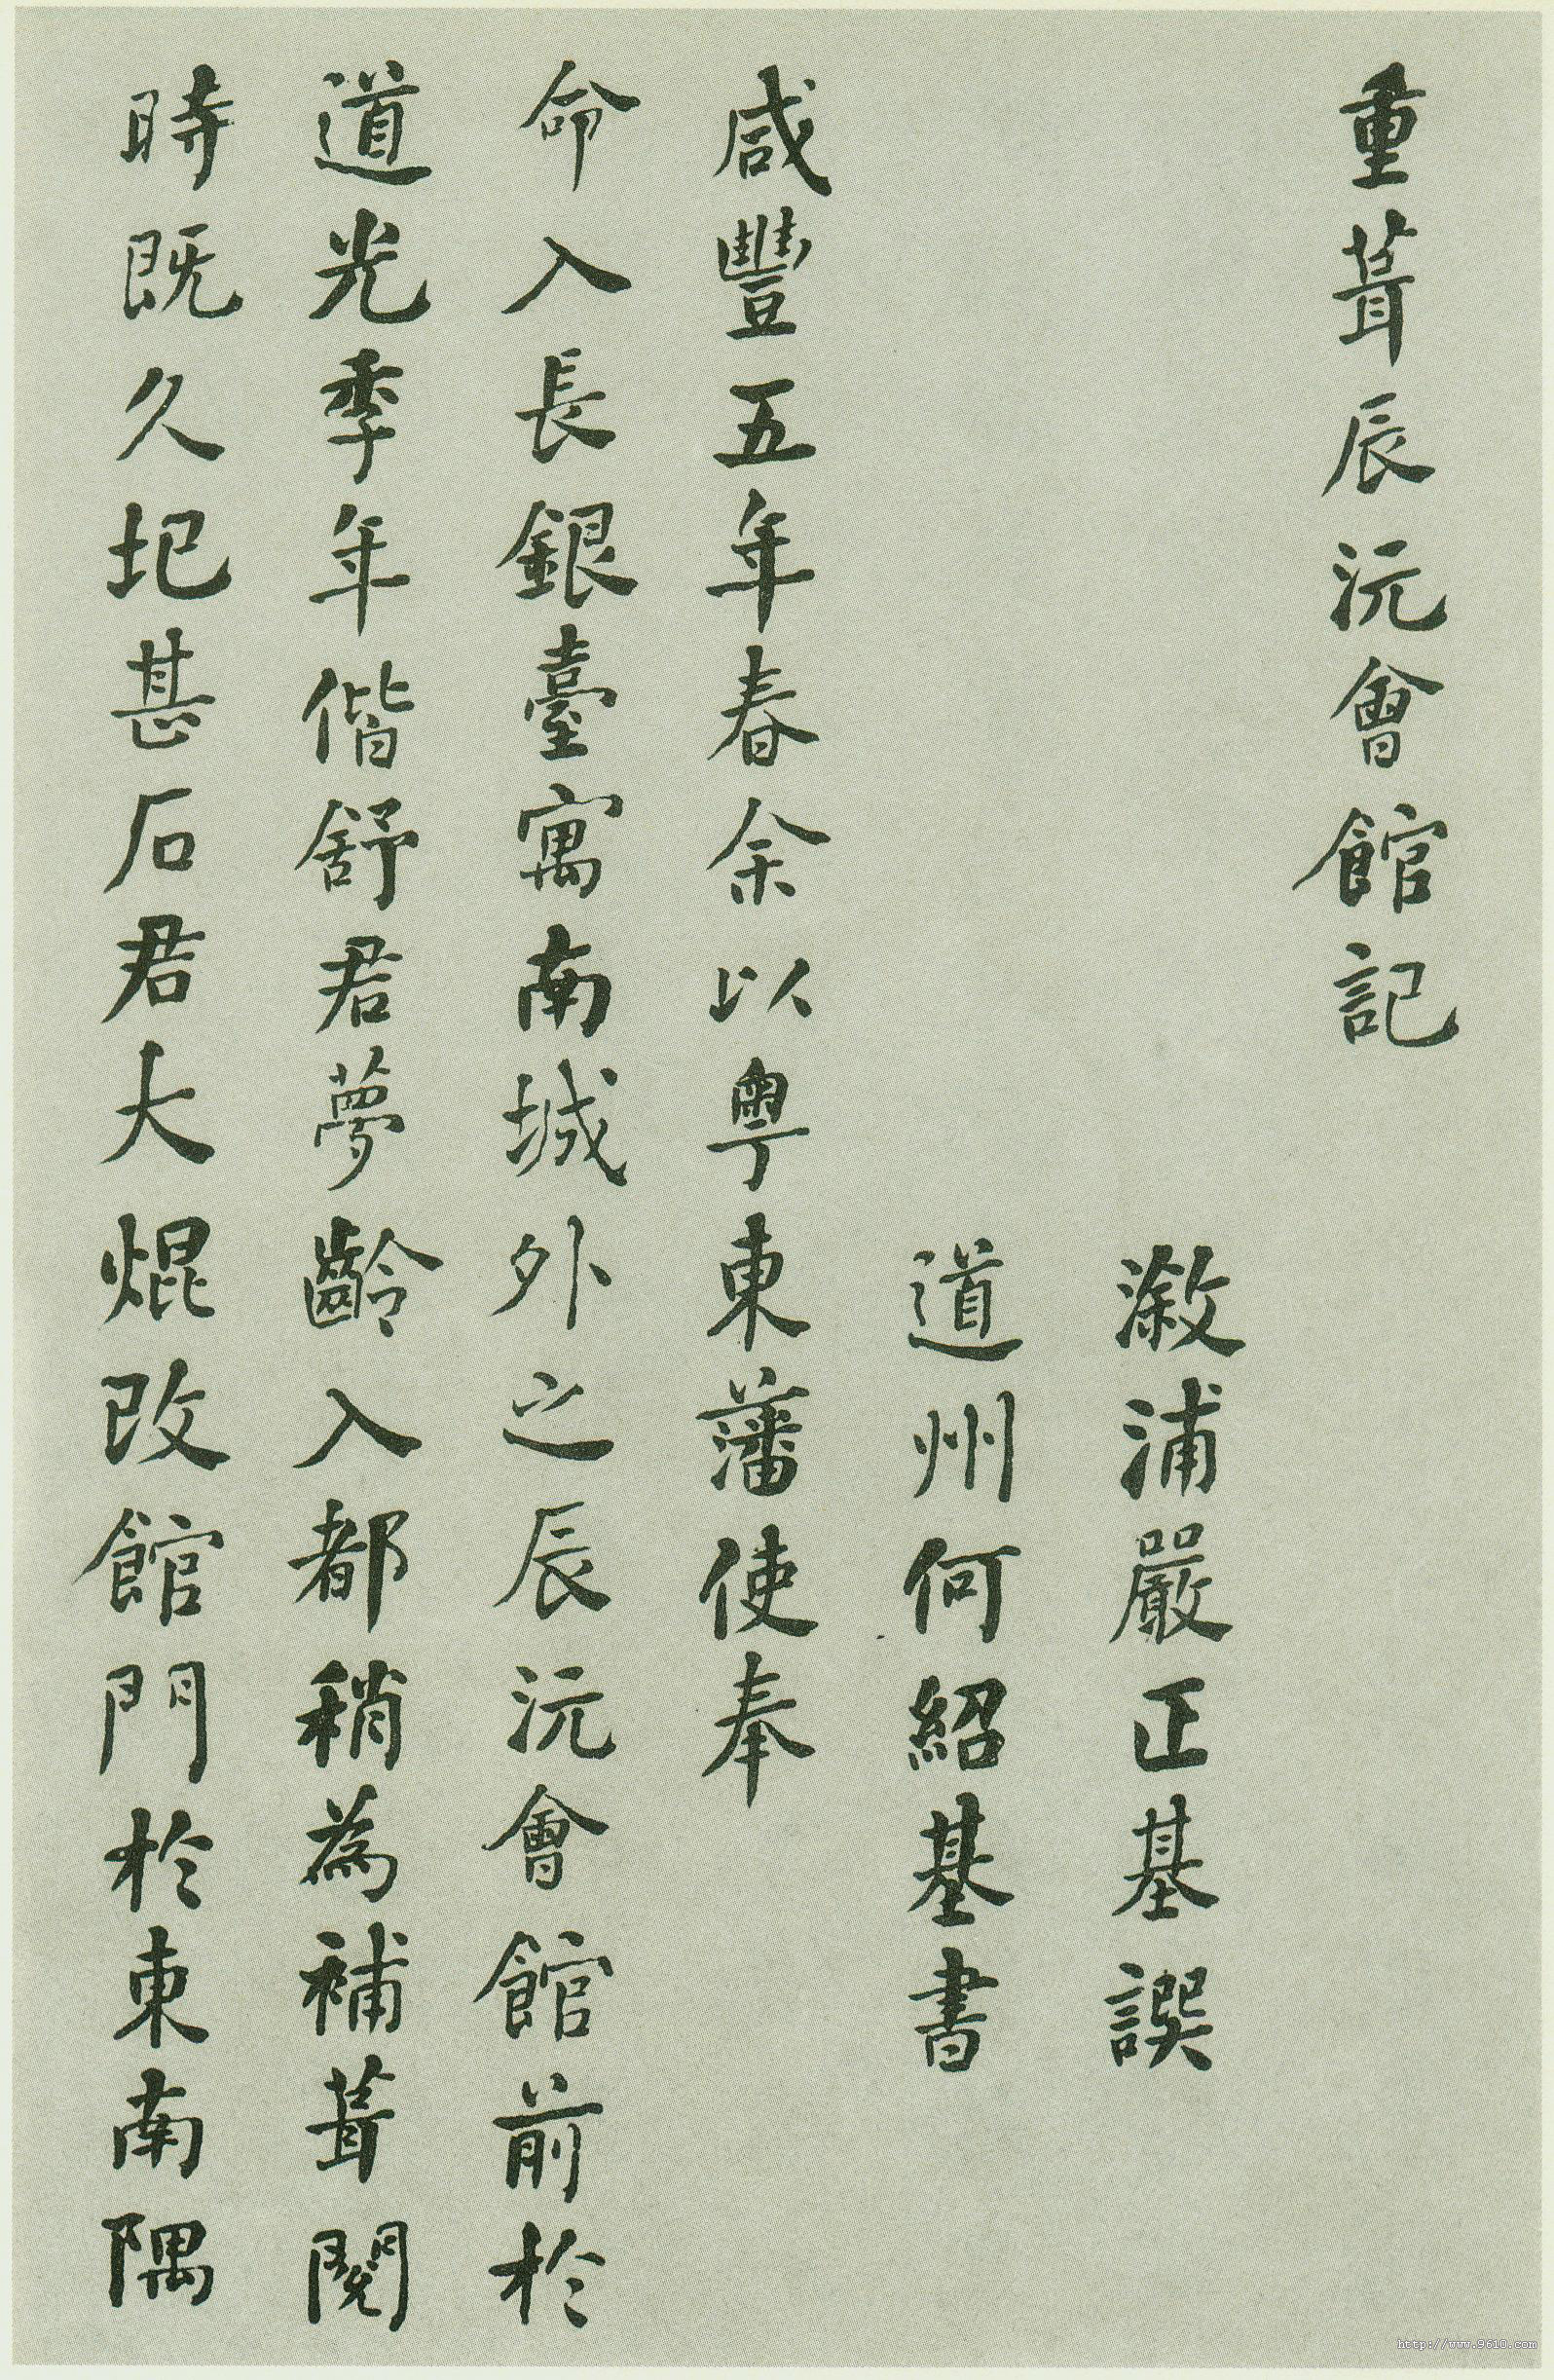 重葺辰沅會館記
漵浦嚴正基譔
道州何紹基書
咸豐五年春余以粵東藩使奉
命入長銀臺寓南城外之辰沅會館前於
道光季年偕舒君夢齡入都稍為補葺閱
時既久圮甚石君大焜改館門於東南隅
http://www.9610.com